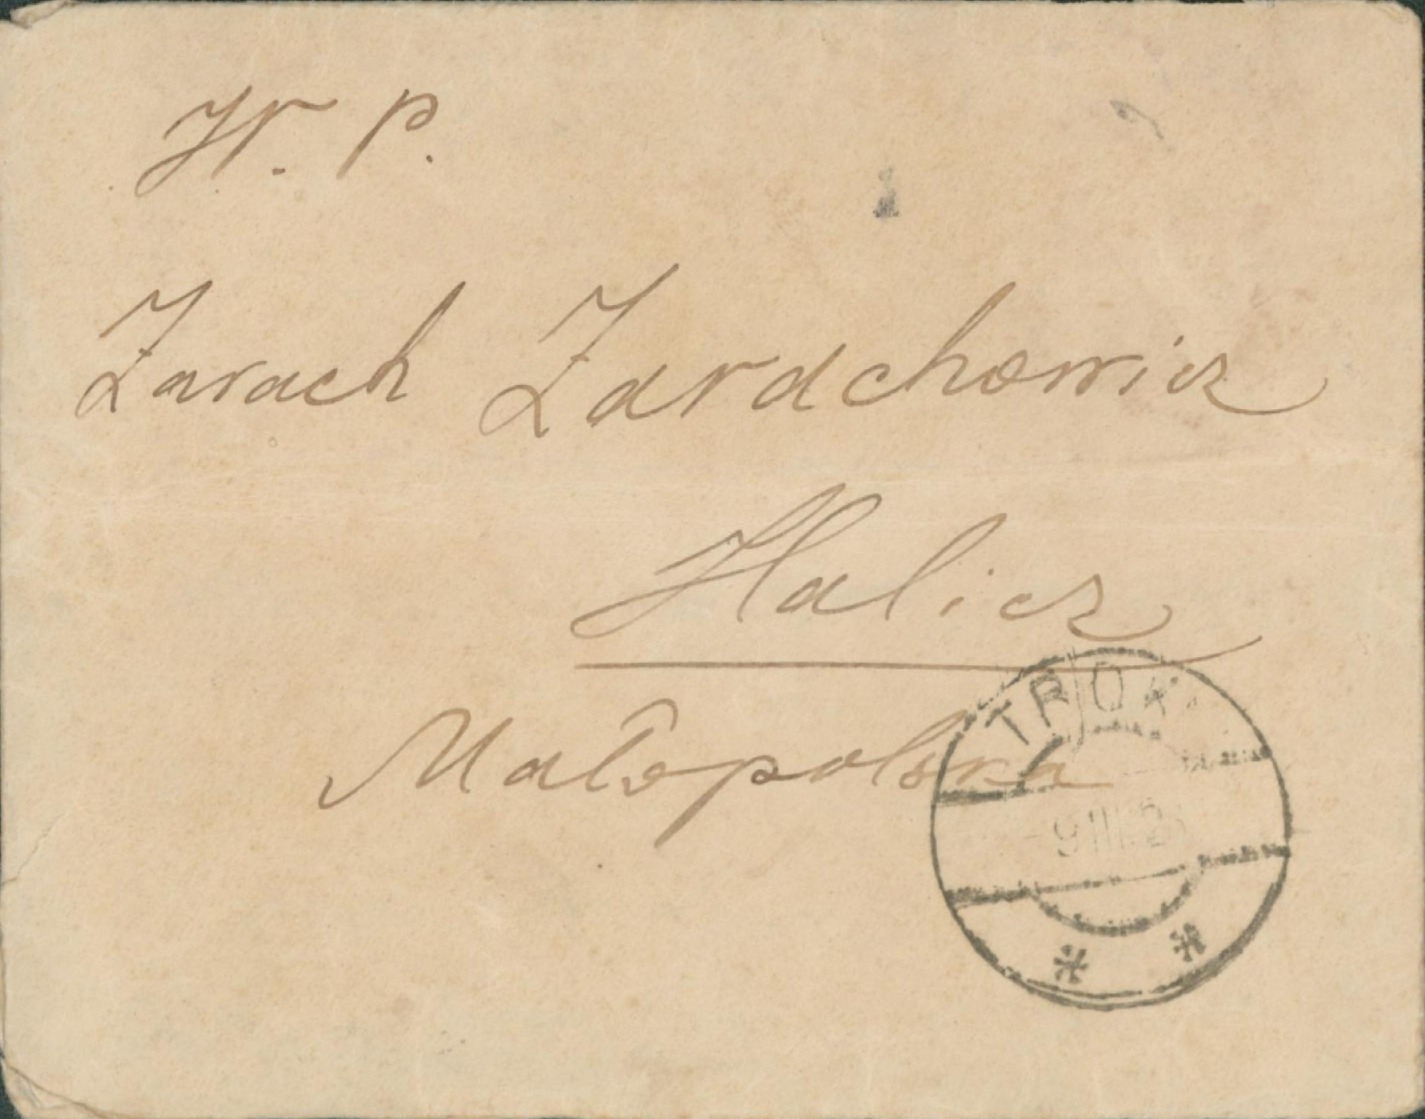 W. P.
Zarach Zarachowicz
Halicz
Małopolska
TROKI